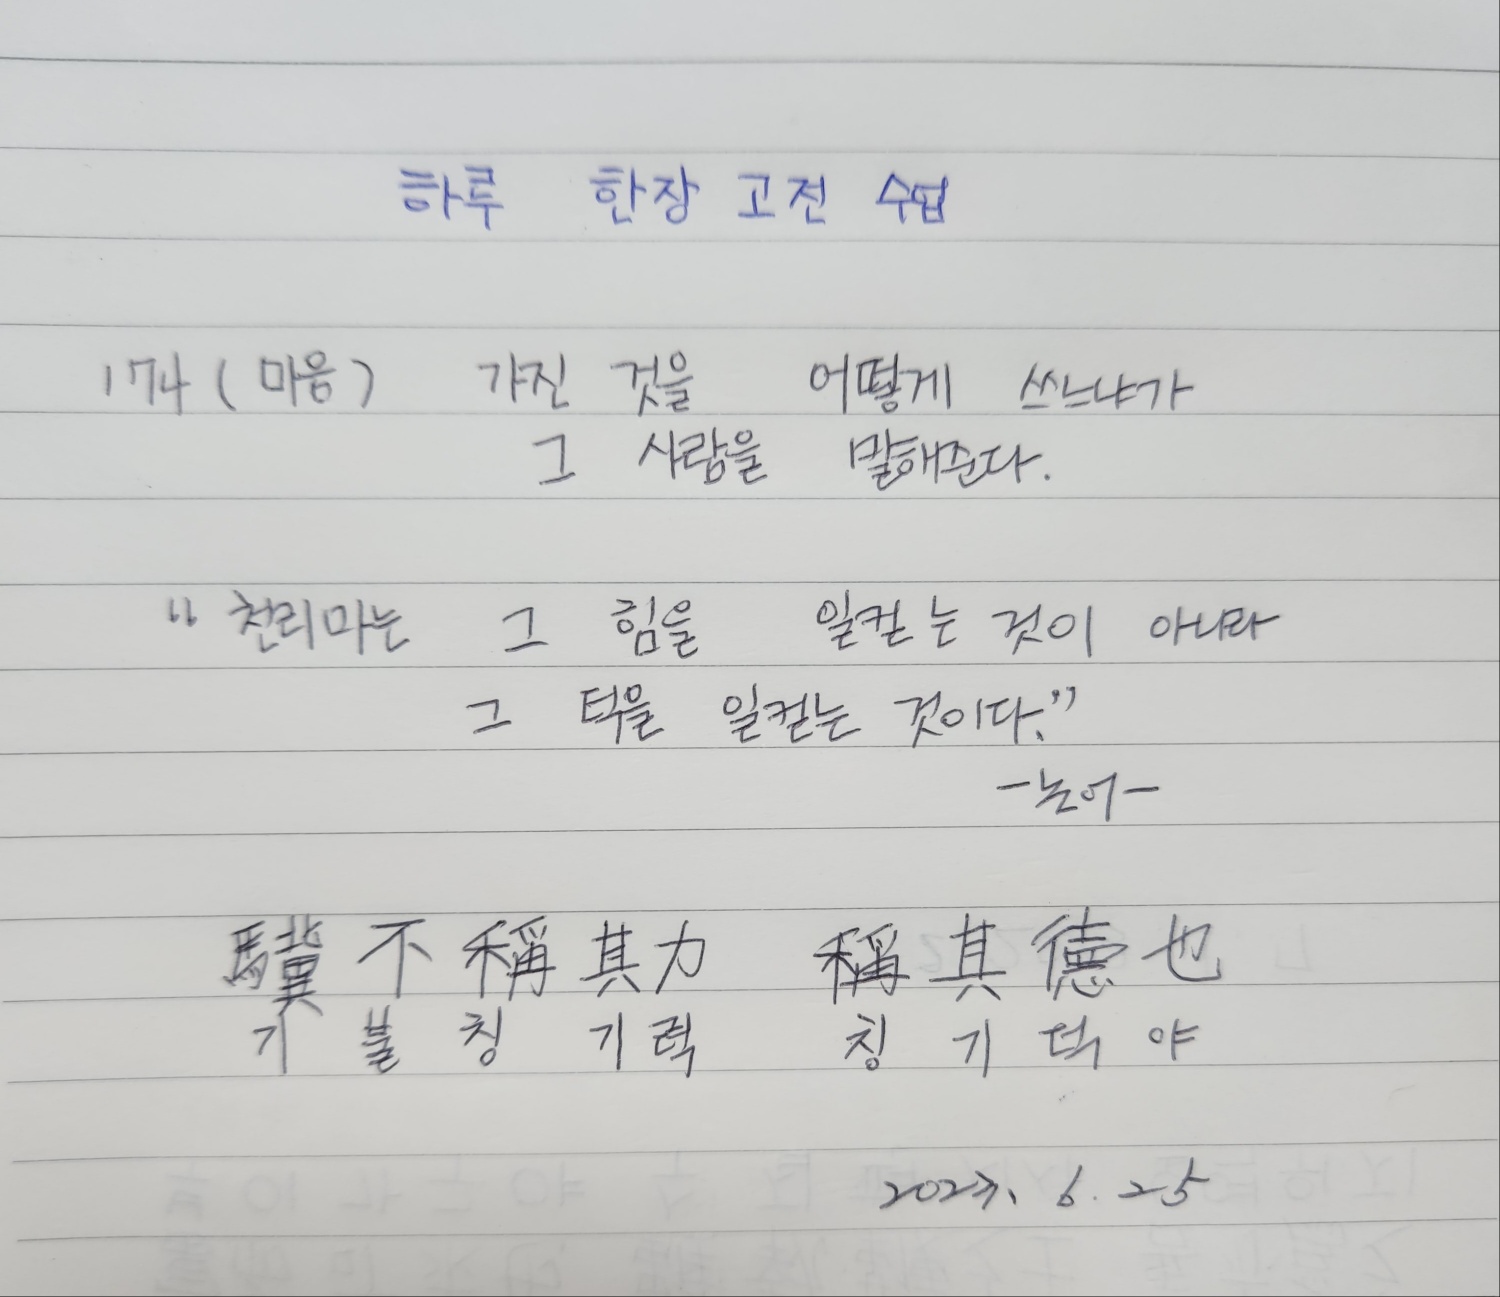 하루 한장 고전 수업
174 (마음) 가진 것을 어떻게 쓰느냐가
그 사람을 말해준다.
"천리마는 그 힘을 일컫는 것이 아니라
그 덕을 일컫는 것이다."
-논어-
驥不稱其力 稱其德也
기 불 칭 기 력 칭 기 덕 야
2023. 6. 25